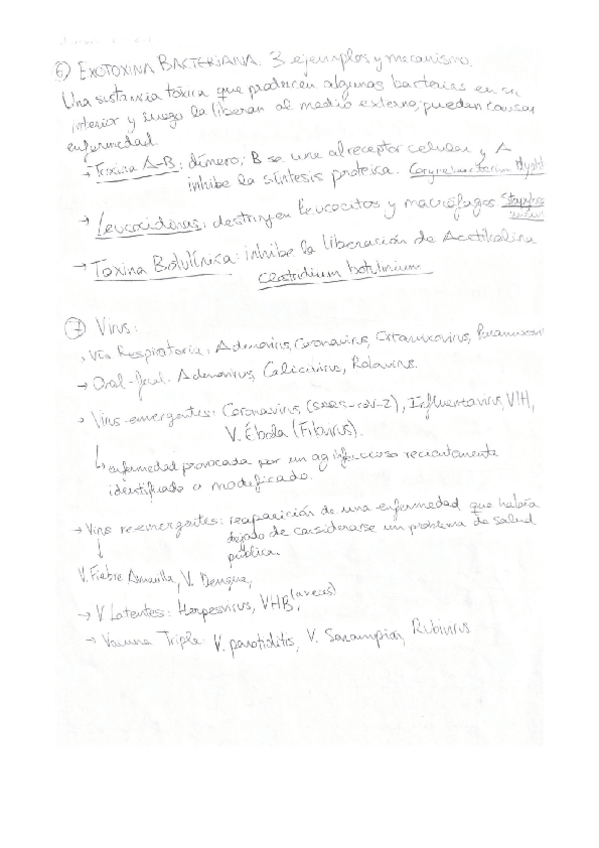 6) EXOTOXINA BACTERIANA. 3 ejemplos y mecanismo.
Una sustancia tóxica que producen algunas bacterias en su
interior y luego la liberan al medio externo, pueden causar
enfermedad.
→ Toxina A-B: dímero; B se une al receptor celular y A
inhibe la síntesis proteica. Corynebacterium
→ Leucocidinas: destruyen leucocitos y macrófagos
→ Toxina Botulínica: inhibe la liberación de Acetilcolina
Clostridium botulinium
7) Virus:
→ Vía Respiratoria: Adenovirus, Coronavirus, Ortomixovirus,
→ Oral-fecal: Adenovirus, Calicivirus, Rotavirus.
→ Virus emergentes: Coronavirus (SARS-CoV-2), Influenzavirus, VIH,
V. Ébola (Filovirus).
↳ enfermedad provocada por un ag infeccioso recientemente
identificado o modificado.
→ Virus re-emergentes: reaparición de una enfermedad que había
dejado de considerarse un problema de salud
pública.
V. Fiebre Amarilla, V. Dengue,
→ V Latentes: Herpesvirus, VHB (a veces),
→ Vacuna Triple: V. parotiditis, V. Sarampión, Rubivirus